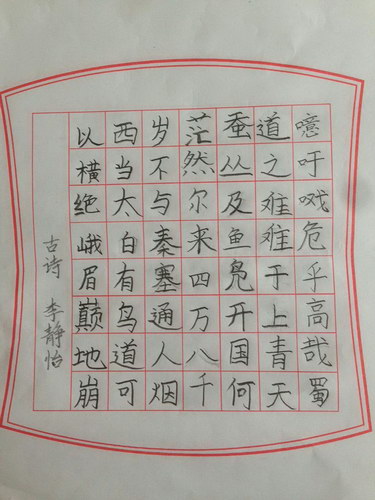 噫吁嚱危乎高哉蜀
道之难难于上青天
蚕丛及鱼凫开国何
茫然尔来四万八千
岁不与秦塞通人烟
西当太白有鸟道可
以横绝峨眉巅地崩
古诗 李静怡